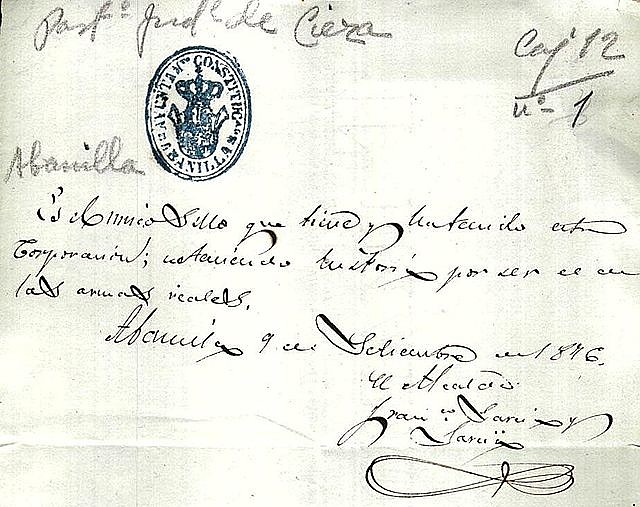 Part.º Jud.l de Cieza
Caj 12
nº 1
AYUNTAMIENTO CONSTITUC.L DE ABANILLA
Abanilla
Es el unico Sello que tiene y usando esta
Corporación; no teniendo historia por ser el de
las armas reales.
Abanilla 9 de Setiembre de 1876.
El Alcalde
Fran.co Garcia y
Garcia